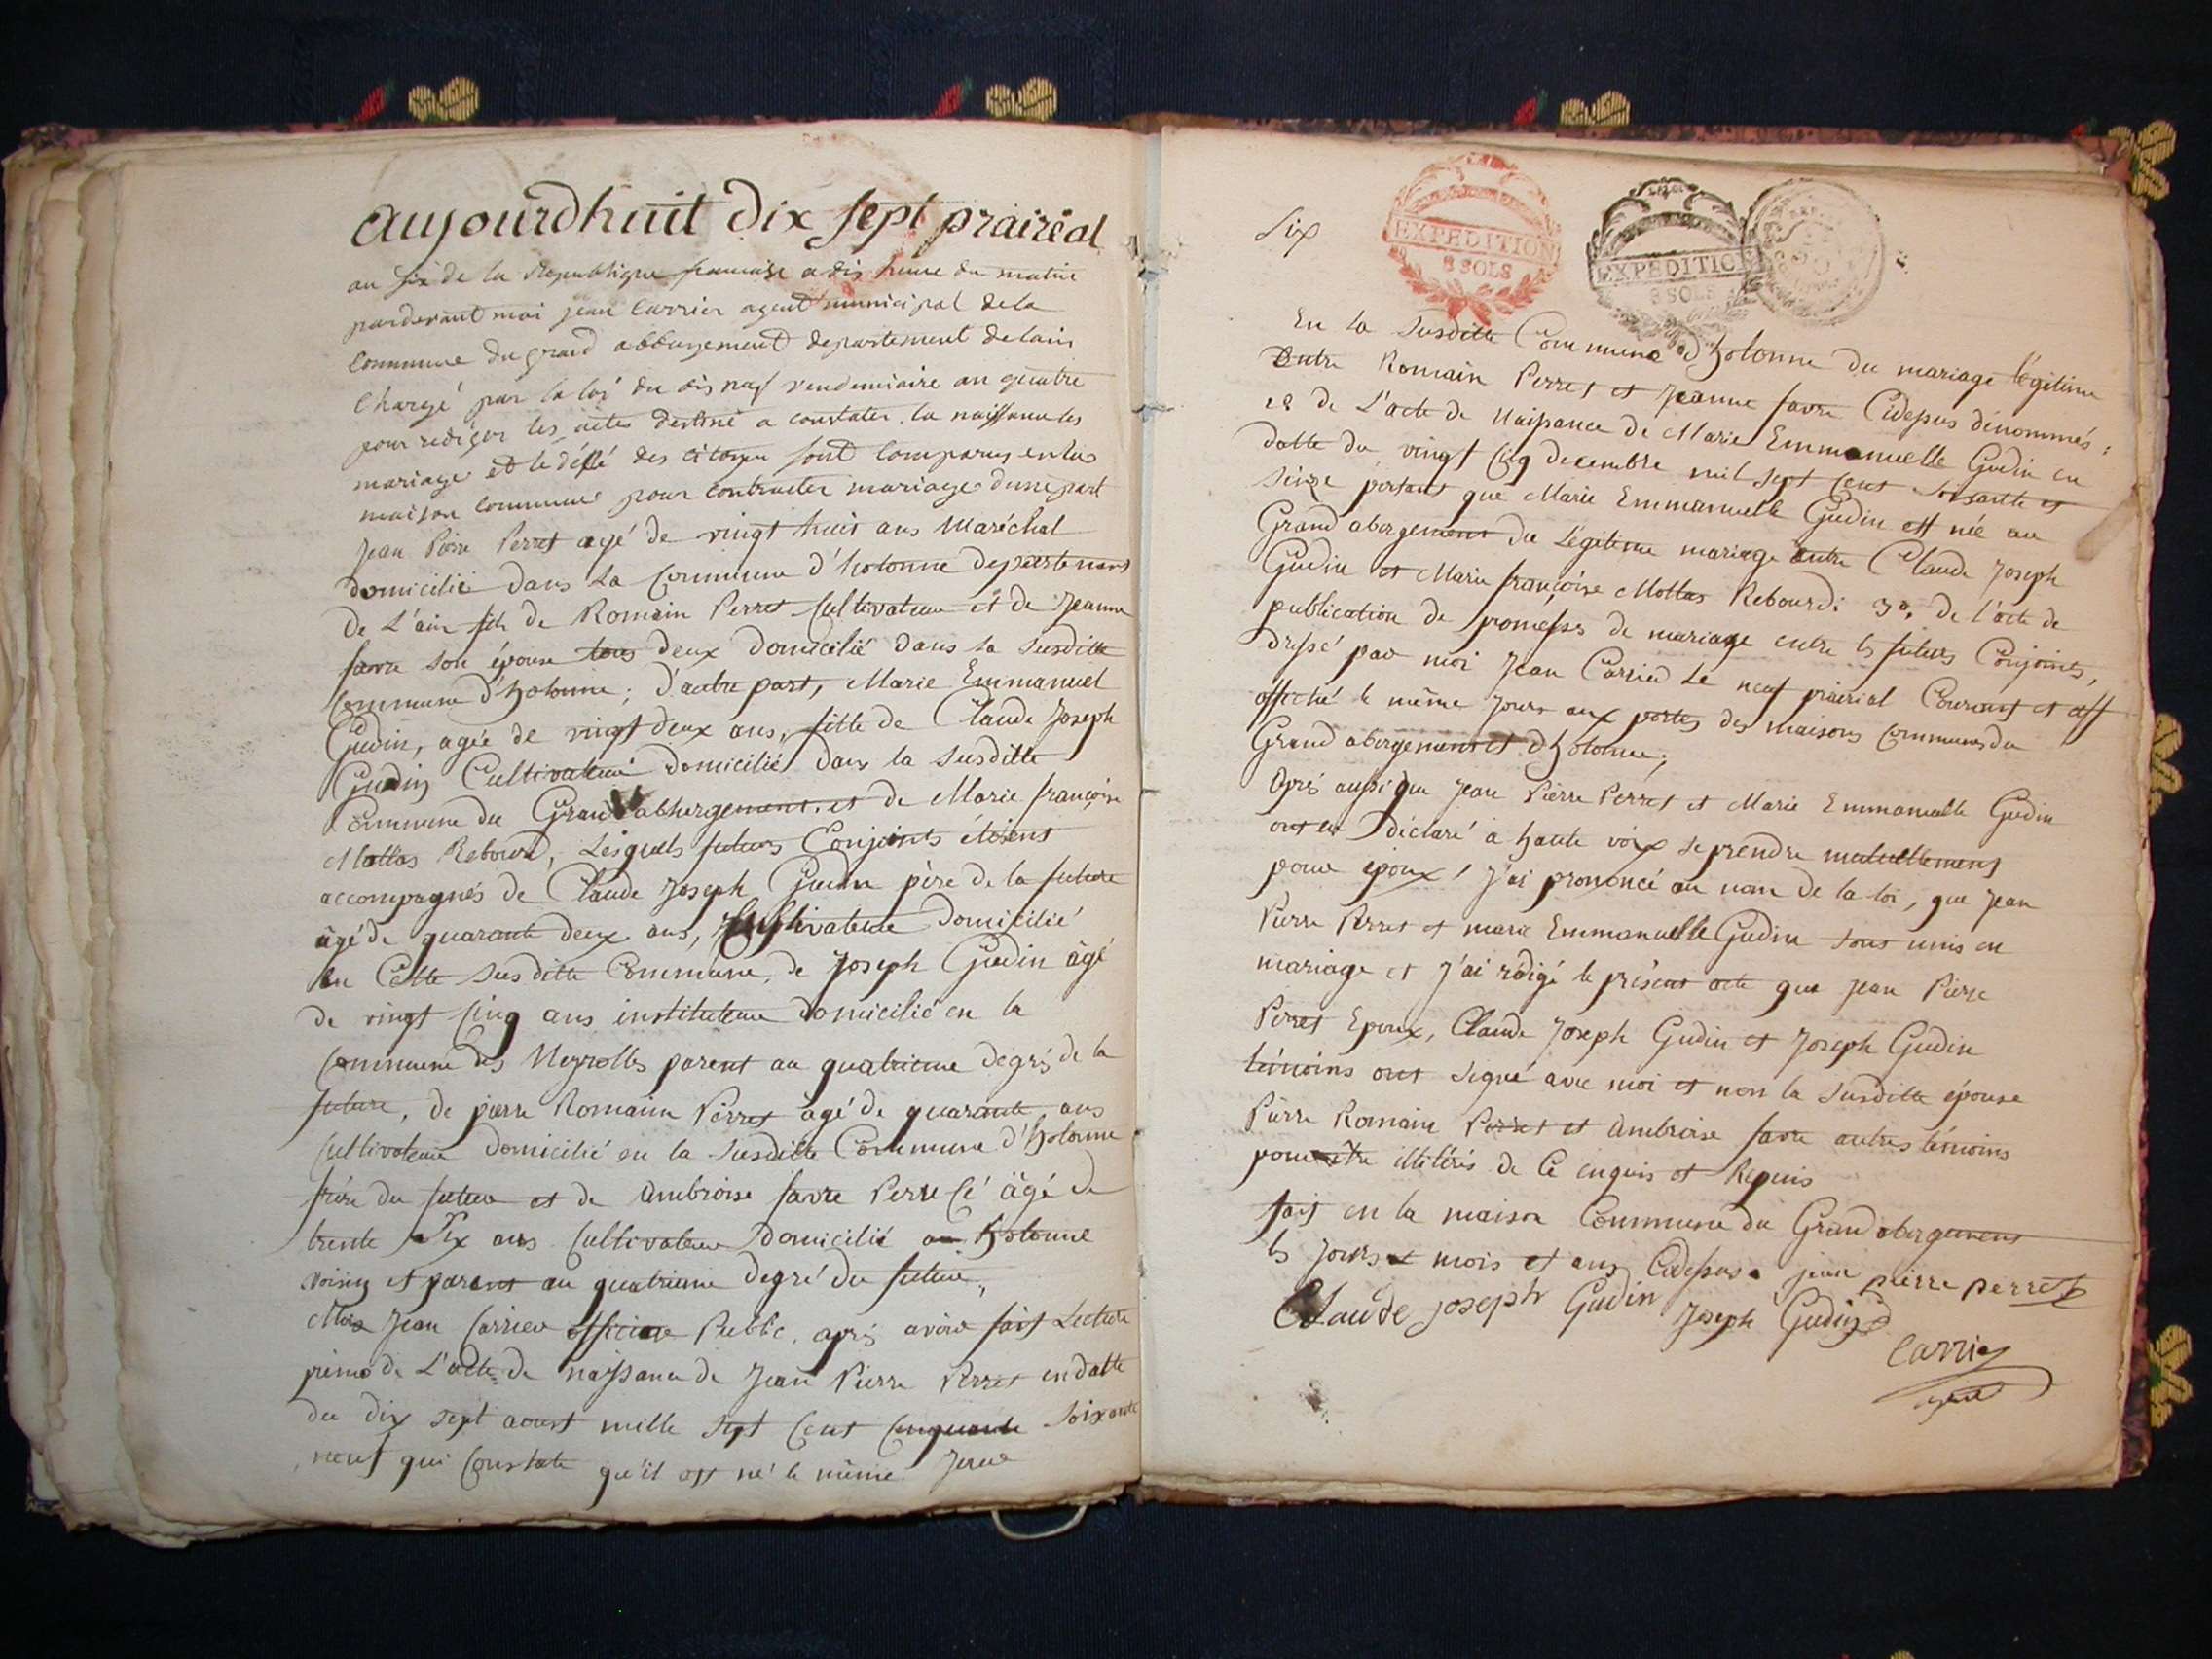 aujourdhuit dix sept prairéal
an six de la Republique francaise a dix heure du matin
pardevant moi jean Carrier agent municipal de la
Commune du grand abbergement departement de lain
Chargé par la loi du dix neuf vendemiaire an quatre
pour rediger les actes destiné a constater la naissance les
mariage et le désé des citoyen sont comparus en la
maison commune pour contracter mariage dune part
Jean Pierre Perret agé de vingt huit ans Maréchal
domicilié dans la Commune d'hotonne departement
de L'ain fils de Romain Perret Cultivateur et de Jeanne
favre son épouse tous deux domicilié dans la susditte
Commune d'hotonne; d'autre part, Marie Emmanuel
Gudin, agée de vingt deux ans, fille de Claude Joseph
Gudin Cultivateur domicilié dans la susditte
Commune du Grand abbergement. et de Marie françoise
Mottas Rebourd, Lesquels futurs Conjoints étoient
accompagnés de Claude Joseph Gudin père de la future
âgé de quarante deux ans, Cultivateur domicilié
en Cette susditte Commune, de Joseph Gudin âgé
de vingt cinq ans instituteur domicilié en la
Commune des Neyrolles parent au quatrieme degré de la
future, de pierre Romain Perret âgé de quarante ans
Cultivateur domicilié en la susditte Commune d'hotonne
frère du futur et de Ambroise favre Perre âgé de
trente six ans Cultivateur domicilié a hotonne
voisin et parent au quatrieme degré du futur,
Moi Jean Carrier officier Public. après avoir fait Lecture
primo de L'acte de naissance de Jean Pierre Perret en datte
du dix sept aoust mille sept Cent cinquante soixante
neuf qui Constate qu'il est né le même Jour
Six
EXPEDITION
8 SOLS
EXPEDITION
8 SOLS
En la susditte Commune d'hotonne du mariage légitime
entre Romain Perret et Jeanne favre Cidessus dénommés;
2º de L'acte de Naissance de Marie Emmanuelle Gudin en
datte du vingt cinq decembre mil sept cent soixante et
seize portant que Marie Emmanuelle Gudin est née au
Grand abergement du Légitime mariage entre Claude Joseph
Gudin et Marie françoise Mottas Rebourdi 3º, de l'acte de
publication de promesses de mariage entre les futurs Conjoints,
dressé par moi Jean Carrier Le neuf prairial Courant et aff
affiché le même Jour aux portes des maisons communes du
Grand abergement et d'hotonne;
Après aussi que Jean Pierre Perret et Marie Emmanuelle Gudin
ont eu déclaré à haute voix se prendre mutuellement
pour époux, J'ai prononcé au nom de la loi, que Jean
Pierre Perret et marie Emmanuelle Gudin sont unis en
mariage et J'ai rédigé le présent acte que Jean Pierre
Perret Epoux, Claude Joseph Gudin et Joseph Gudin
témoins ont signé avec moi et non la susditte épouse
Pierre Romain Perret et Ambroise favre autres témoins
pour être illitérés de Ce enquis et Requis
fait en la maison Commune du Grand abergement
les Jours mois et ans Cidessus. jean pierre perret
Claude joseph Gudin Joseph Gudin
Carrier
agent